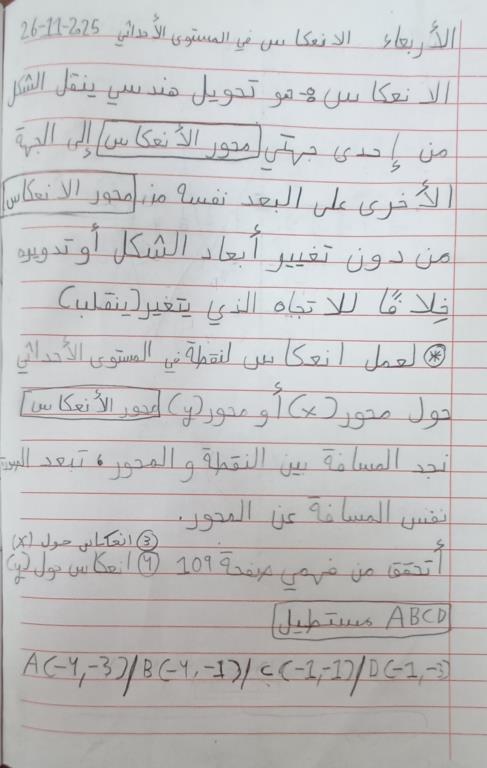 الأربعاء الانعكاس في المستوى الأحداثي 26-11-2025
الانعكاس :- هو تحويل هندسي ينقل الشكل
من إحدى جهتي محور الأنعكاس إلى الجهة
الأخرى على البعد نفسه من محور الانعكاس
من دون تغيير أبعاد الشكل أو تدويره
خِلافًا للاتجاه الذي يتغير (ينقلب)
* لعمل انعكاس لنقطة في المستوى الأحداثي
حول محور (x) أو محور (y) محور الأنعكاس
نجد المسافة بين النقطة والمحور ، تبعد الصورة
نفس المسافة عن المحور.
③ انعكاس حول (x)
أتحقق من فهمي صفحة 109 ④ انعكاس حول (y)
ABCD مستطيل
A(-4,-3)/B(-4,-1)/C(-1,-1)/D(-1,-3)